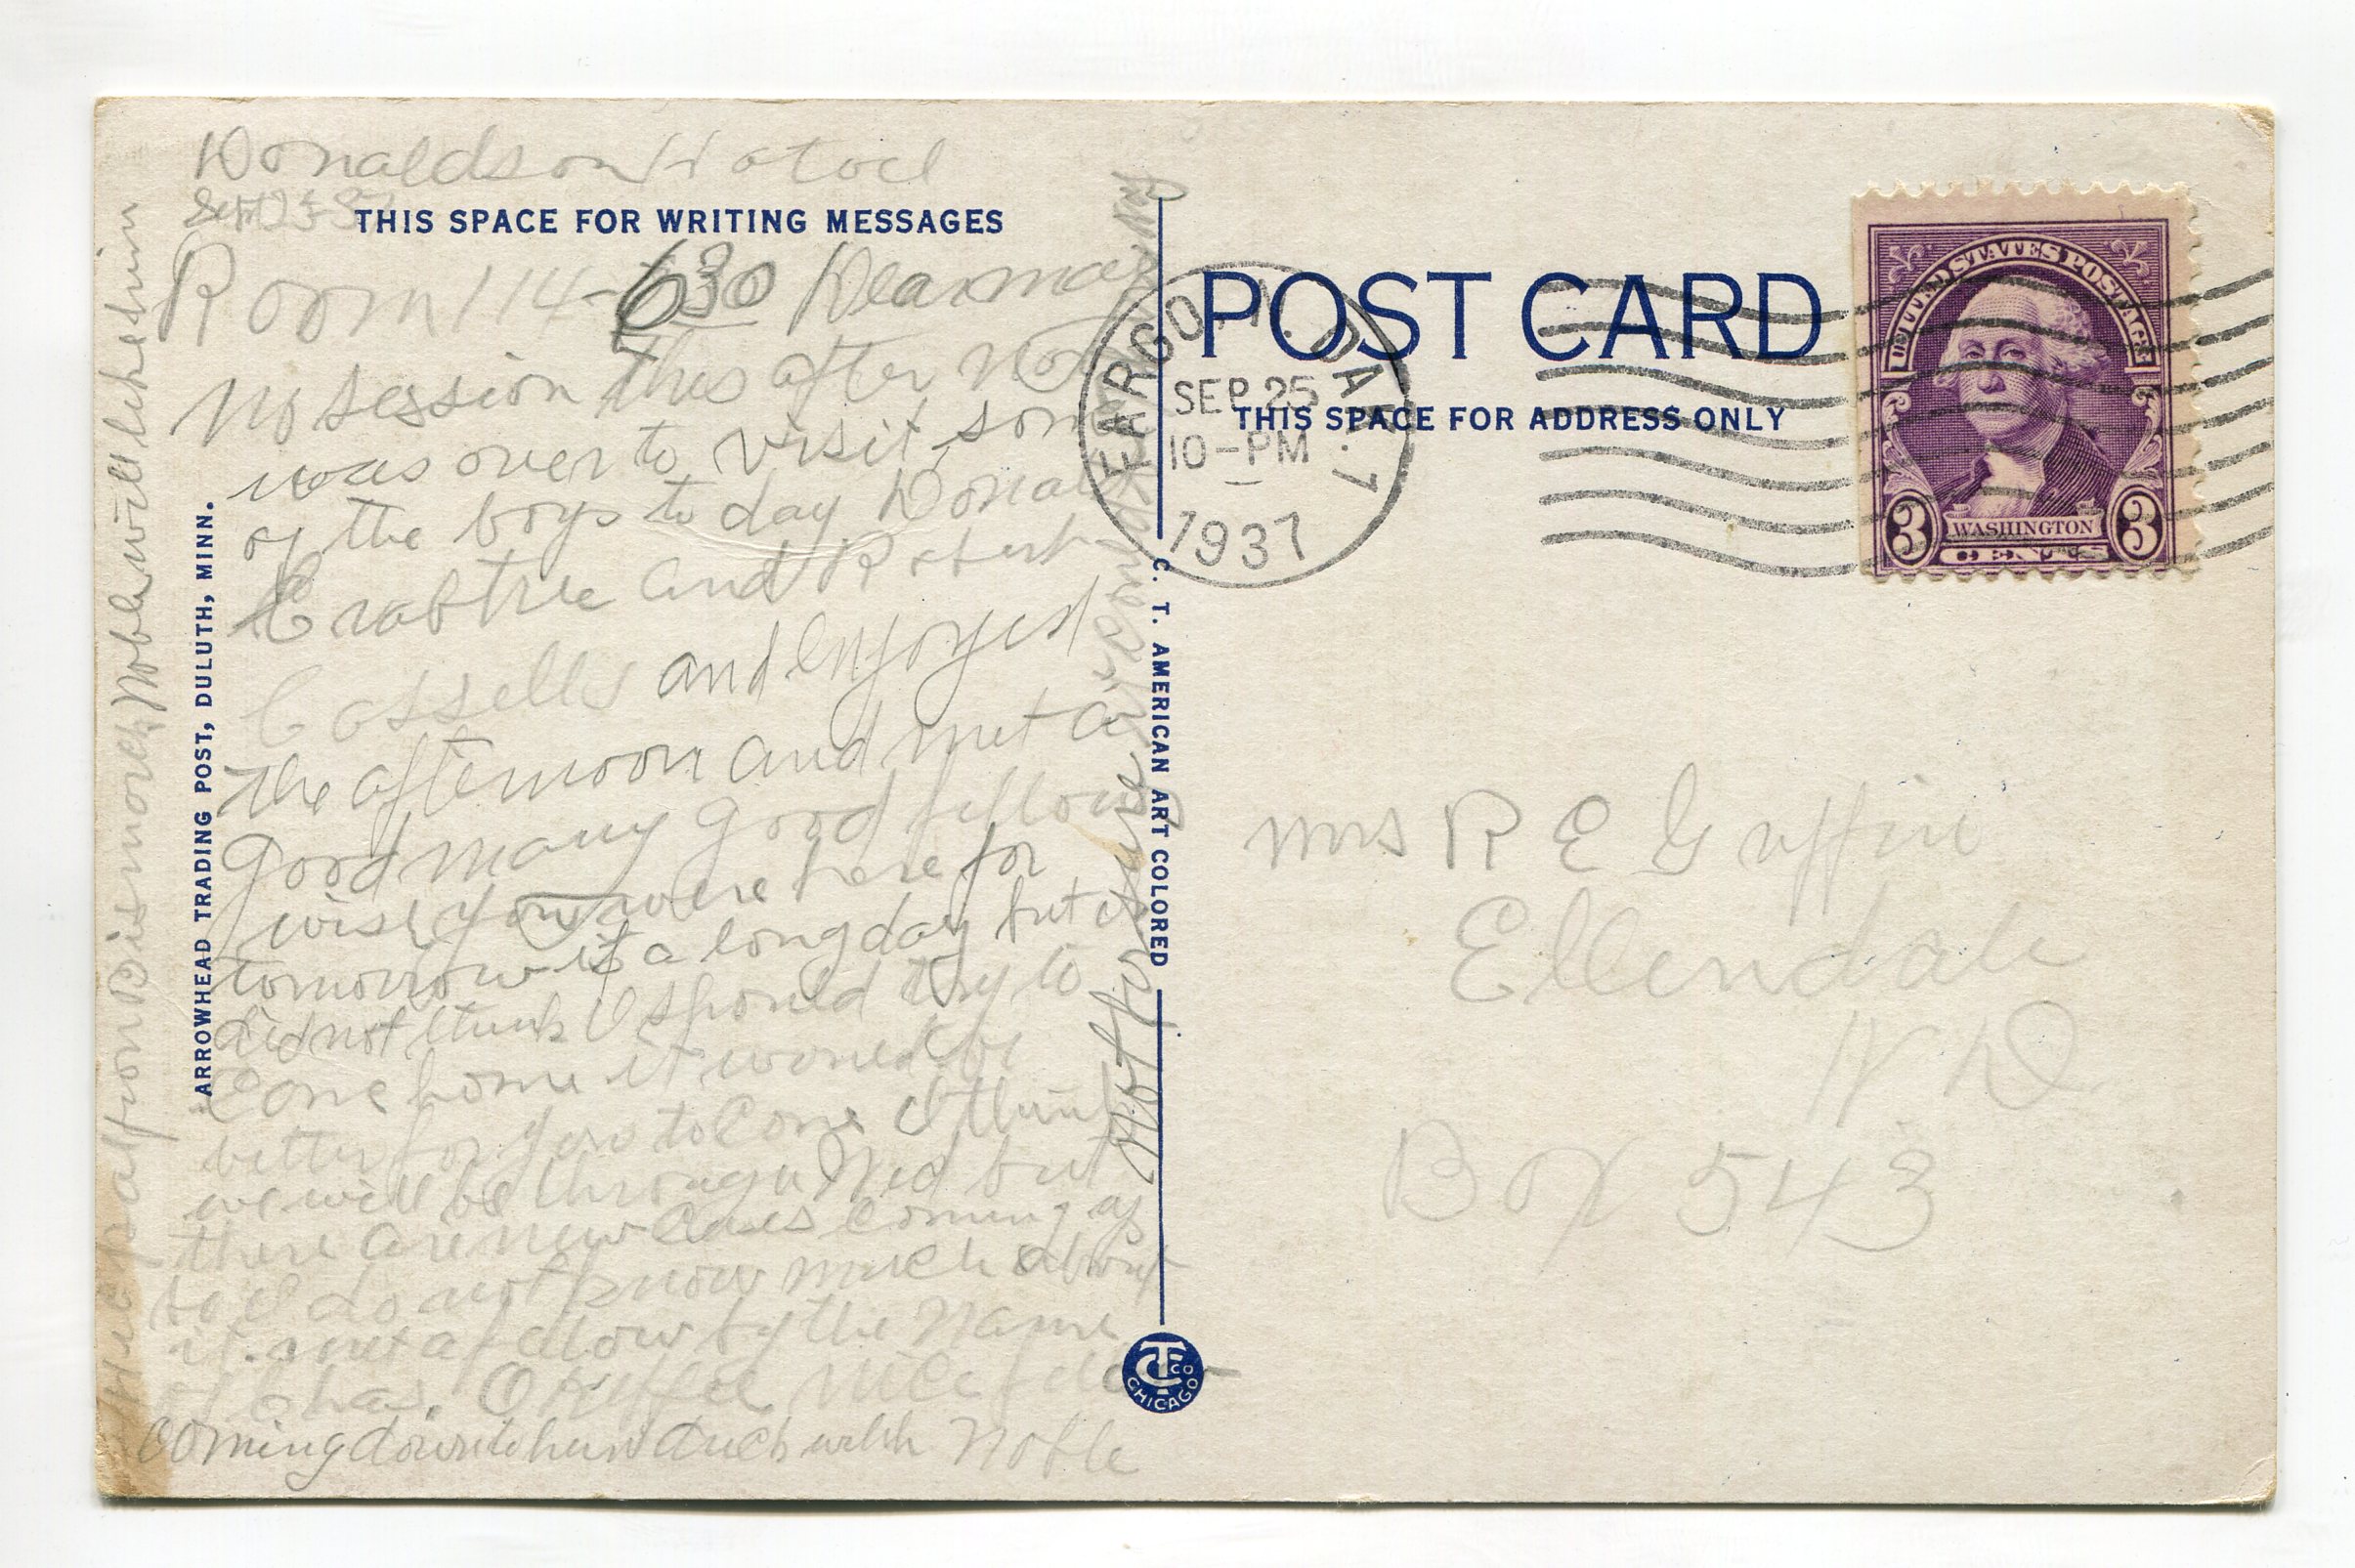 Donaldson Hotoel
Sept 25-37
THIS SPACE FOR WRITING MESSAGES
Room 114-630 Dear may
no session this after noon
was over to visit some
of the boys to day Donald
Crabtree and Robert
Cassells and enjoyed
the afternoon and met a
good many good fellows
wish you were here for
tomorrow is a long day but it
did not think I should try to
Come home it would be
better for you to Come I think
we will be through Wed but
there are new Cases coming up
so I do not know much about
it. met a fellow by the Name
of Chas. O
coming down to hunt duck with Noble
He is from Bismarck, Noble will like him
Not
ARROWHEAD TRADING POST, DULUTH, MINN.
C. T. AMERICAN ART COLORED
CT CO CHICAGO
POST CARD
THIS SPACE FOR ADDRESS ONLY
FARGO, N. DAK. 7
SEP 25
10-PM
1937
UNITED STATES POSTAGE
WASHINGTON
3 CENTS 3
Mrs R E Griffin
Ellendale
N D
Box 543